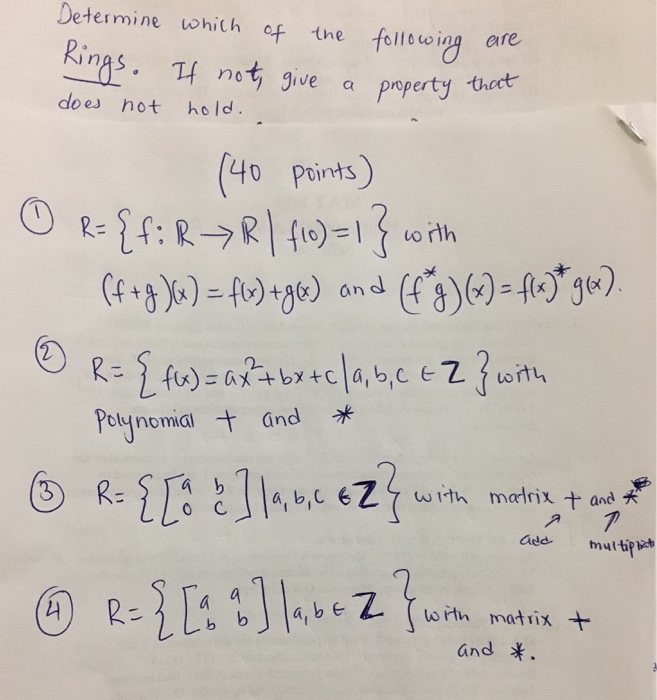 Determine which of the following are
Rings. If not, give a property that
does not hold.
(40 points)
① R= { f: ℝ → ℝ | f(0)=1 } with
(f+g)(x) = f(x)+g(x) and (f*g)(x) = f(x)*g(x).
② R= { f(x) = ax²+bx+c | a,b,c ∈ Z } with
Polynomial + and *
③ R= { [a b 0 c] | a,b,c ∈ Z } with matrix + and *
add multiplicat
④ R= { [a a b b] | a,b ∈ Z } with matrix +
and *.